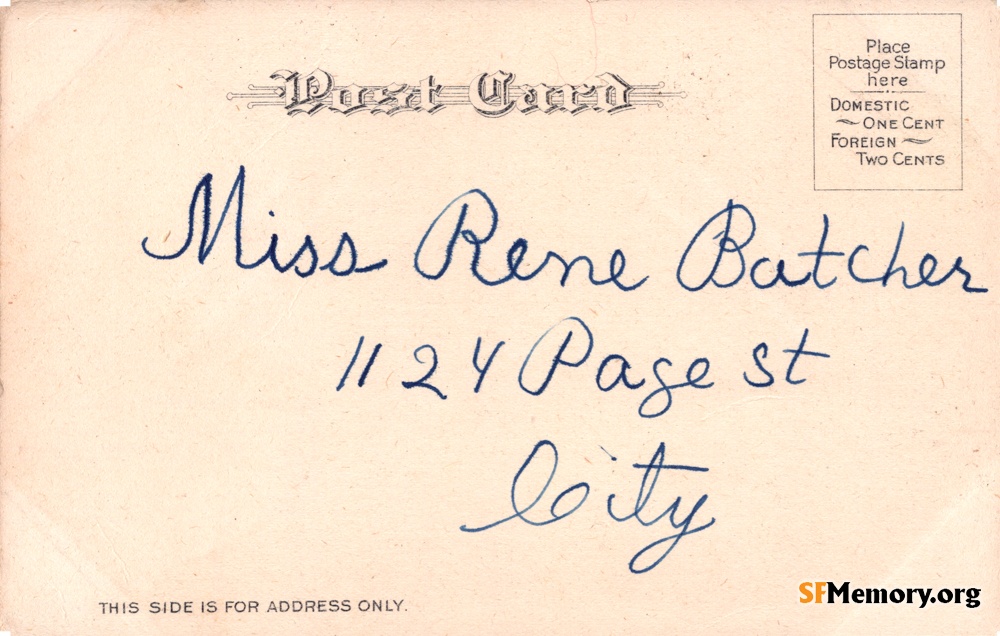 Post Card
Place
Postage Stamp
here
DOMESTIC
ONE CENT
FOREIGN
TWO CENTS
Miss Rene Batcher
1124 Page St
City
THIS SIDE IS FOR ADDRESS ONLY.
SFMemory.org